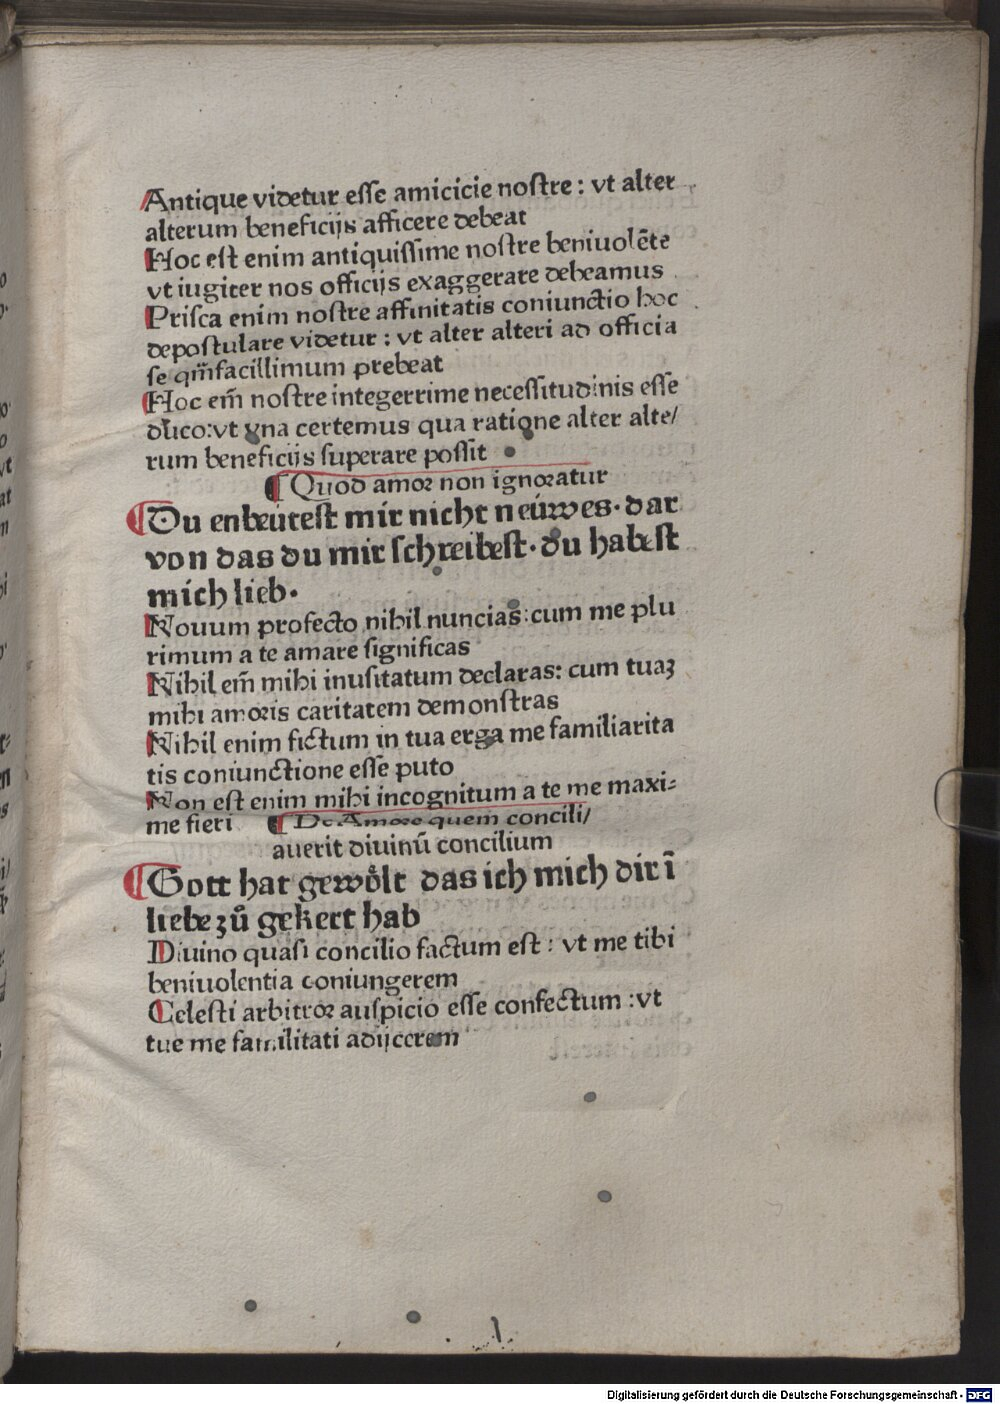 Antique videtur esse amicicie nostre : vt alter
alterum beneficijs afficere debeat
Hoc est enim antiquissime nostre beniuolēte
vt iugiter nos officijs exaggerare debeamus
Prisca enim nostre affinitatis coniunctio hoc
depostulare videtur : vt alter alteri ad officia
se qm̄facillimum prebeat
Hoc em̄ nostre integerrime necessitudinis esse
duco:vt vna certemus qua ratione alter alte/
rum beneficijs superare possit
¶ Quod amor non ignoratur
¶ Du enbeütest mir nicht neüwes· dar
von das du mir schreibest· du habest
mich lieb·
Nouum profecto nihil nuncias:cum me plu
rimum a te amare significas
Nihil em̄ mihi inusitatum declaras: cum tuaꝫ
mihi amoris caritatem demonstras
Nihil enim fictum in tua erga me familiarita
tis coniunctione esse puto
Non est enim mihi incognitum a te me maxi-
me fieri ¶ De Amore quem concili/
auerit diuinū concilium
¶ Gott hat gewölt das ich mich dir ī
liebe zů gekert hab
Diuino quasi concilio factum est : vt me tibi
beniuolentia coniungerem
Celesti arbitror auspicio esse confectum :vt
tue me familitati adijcerem
Digitalisierung gefördert durch die Deutsche Forschungsgemeinschaft - DFG